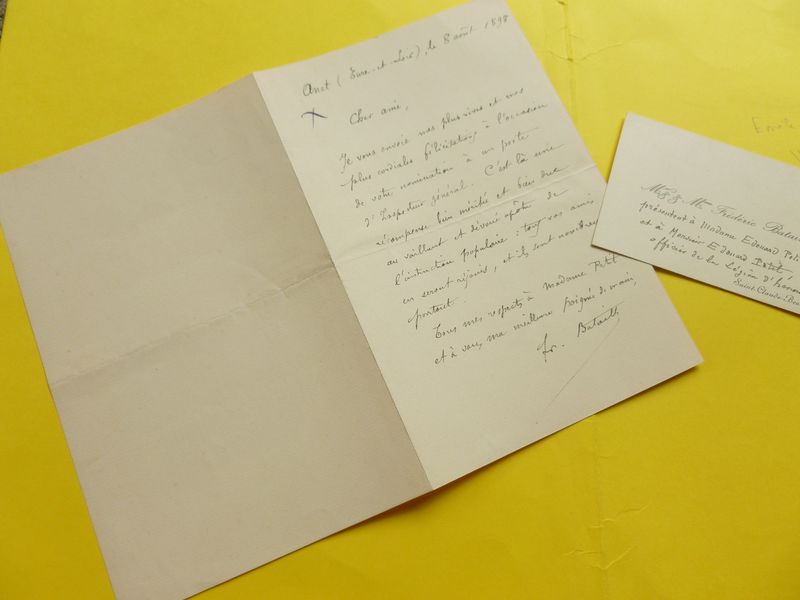 Anet (Eure-et-Loir), le 8 août 1898
Cher ami,
Je vous envoie mes plus vives et mes
plus cordiales félicitations à l'occasion
de votre nomination à un poste
d'Inspecteur général. C'est là une
récompense bien méritée et bien due
au vaillant et dévoué apôtre de
l'instruction populaire : tous vos amis
en seront réjouis, et ils sont nombreux
partout.
Tous mes respects à Madame Petit
et à vous, ma meilleure poignée de main,
Fr. Bataille
M. & Mme Frédéric Batai
présentent à Madame Edouard Peti
et à Monsieur Edouard Petit
officier de la Légion d'honn
Saint-Claude-Bes